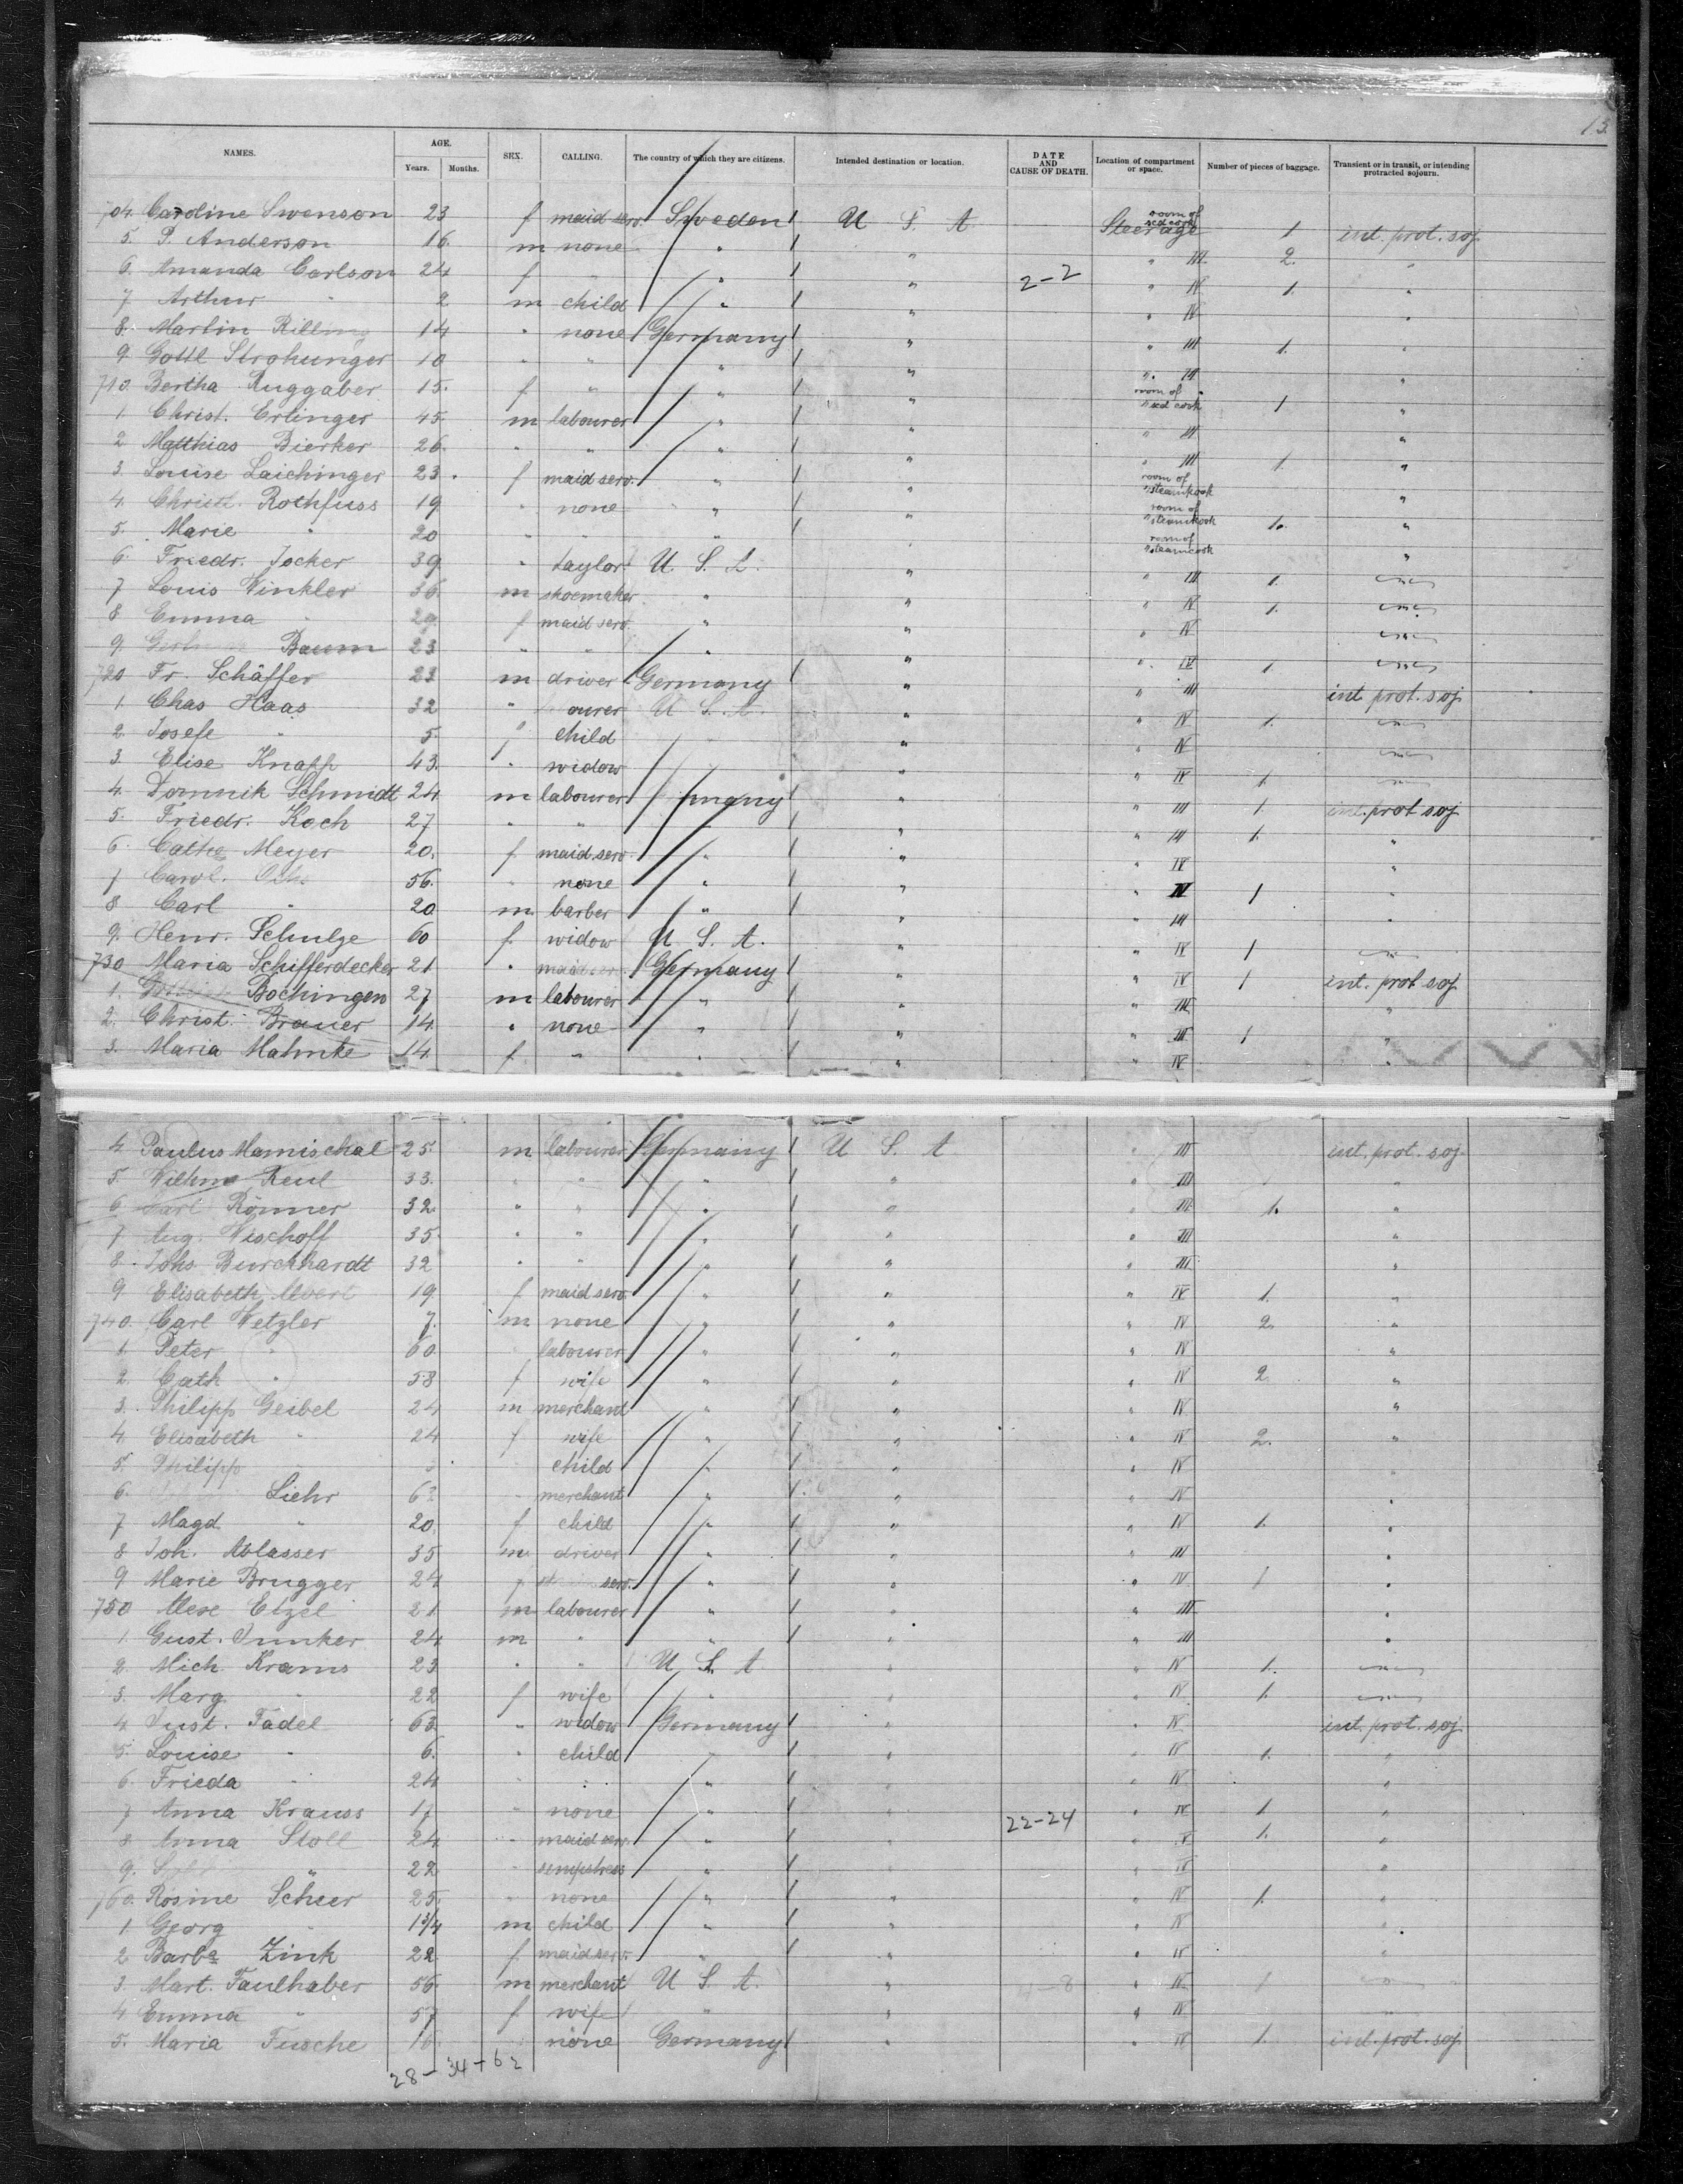 13.
NAMES. AGE. Years. Months. SEX. CALLING. The country of which they are citizens. Intended destination or location. DATE AND CAUSE OF DEATH. Location of compartment or space. Number of pieces of baggage. Transient or in transit, or intending protracted sojourn.
704. Caroline Swenson 23 f maid serv. Sweden U S. A Steerage room of scd cook 1 int. prot. soj
5. P. Anderson 16. m none " " " III. 2. "
6. Amanda Carlson 24 f " " " 2-2 " IV 1. "
7 Arthur " 2 m child " " " IV "
8. Martin Rilling 14 " none Germany " " III 1. "
9. Gottl Strohunger 10 " " " " " III "
710. Bertha Ruggaber 15. f " " " room of " scd cook 1 "
1 Christ. Erlinger 45. m labourer " " " III "
2 Matthias Bierker 26. " " " " " III 1. "
3. Louise Laichinger 23. f maid serv. " " room of " steamkook "
4. Christ. Rothfuss 19 " none " " room of " steamkook 1. "
5. Marie " 20 " " " " room of " steamcook "
6. Friedr. Jocker 39. " taylor U. S. A. " " III 1.
7 Louis Winkler 36. m shoemaker " " " IV 1.
8 Emma " 29. f maid serv. " " " IV
9. Baum 23 " " " " " IV 1.
720 Fr. Schäffer 23 m driver Germany " " III int prot. soj
1. Chas Haas 32 " ourer U. S. A. " " IV 1.
2. Josefe " 5. f child " " IV
3. Elise Knapp 43. " widow " " IV 1.
4. Domnik Schmidt 24 m labourer many " " III 1. int. prot soj
5. Friedr. Koch 27 " " " " III 1. "
6. Cathe Meyer 20. f maid serv. " " " IV "
7 Carol. 56. " none " " " IV 1 "
8 Carl " 20 m barber " " " III "
9. Henr. Schulze 60 f widow U S. A. " " IV 1
730 Maria Schifferdecker 21 " maid Germany " " IV 1 int. prot soj
1. Bochingen 27 m labourer " " " III "
2. Christ. Brauer 14. " none " " " III 1 "
3. Maria Mahnke 14. f " " " " IV "
4 Paulus Mamischal 25. m labourer Germany U S. A " III int. prot. soj.
5. Wilhm Reul 33. " " " " " III "
6 Carl Rönner 32. " " " " " III 1. "
7 Aug. Wischoff 35. " " " " " III "
8. Johs Burckhardt 32 " " " " " III "
9 Elisabeth 19 f maid serv. " " " IV 1. "
740. Carl Wetzler 7. m none " " " IV 2. "
1. Peter " 60. labourer " " " IV "
2. Cath " 58 f wife " " " IV 2. "
3. Philipp Geibel 24 m merchant " " " IV "
4. Elisabeth " 24 f wife " " " IV 2. "
5. Philipp child " " " IV "
6. Liehr merchant " " " IV "
7 Magd. " 20. f child " " " IV 1. "
8 Joh. Ablasser 35 m driver " " " III "
9 Marie Brugger 24 serv. " " " IV 1 "
750 Etzel 21 m labourer " " " III "
1. Gust. Junker 24 m " " " III "
2. Mich. Krams 23 " " U S. A " " IV 1.
3. Marg. " 22 f wife " " " IV 1.
4 Just. Fadel 63. " widow Germany " " IV int. prot. soj
5. Louise " 6. " child " " " IV 1. "
6. Frieda " 24 " " " " IV "
7 Anna Krauss 17 " none " " 22-24 " IV 1. "
8. Anna Stoll 24 " maid serv. " " " IV 1. "
9. " 22 " sempstress " " " IV "
760. Rosine Scheer 25. " none " " " IV 1. "
1. Georg " 1 3/4 m child " " " IV "
2 Barba Zink 22 f. maid serv. " " " IV "
3. Mart. Faulhaber 56 m merchant U S. A. " " IV 1
4 Emma " 57 f. wife " " " IV
5. Maria Fusche none Germany " " IV 1. int. prot. soj
28-34-62